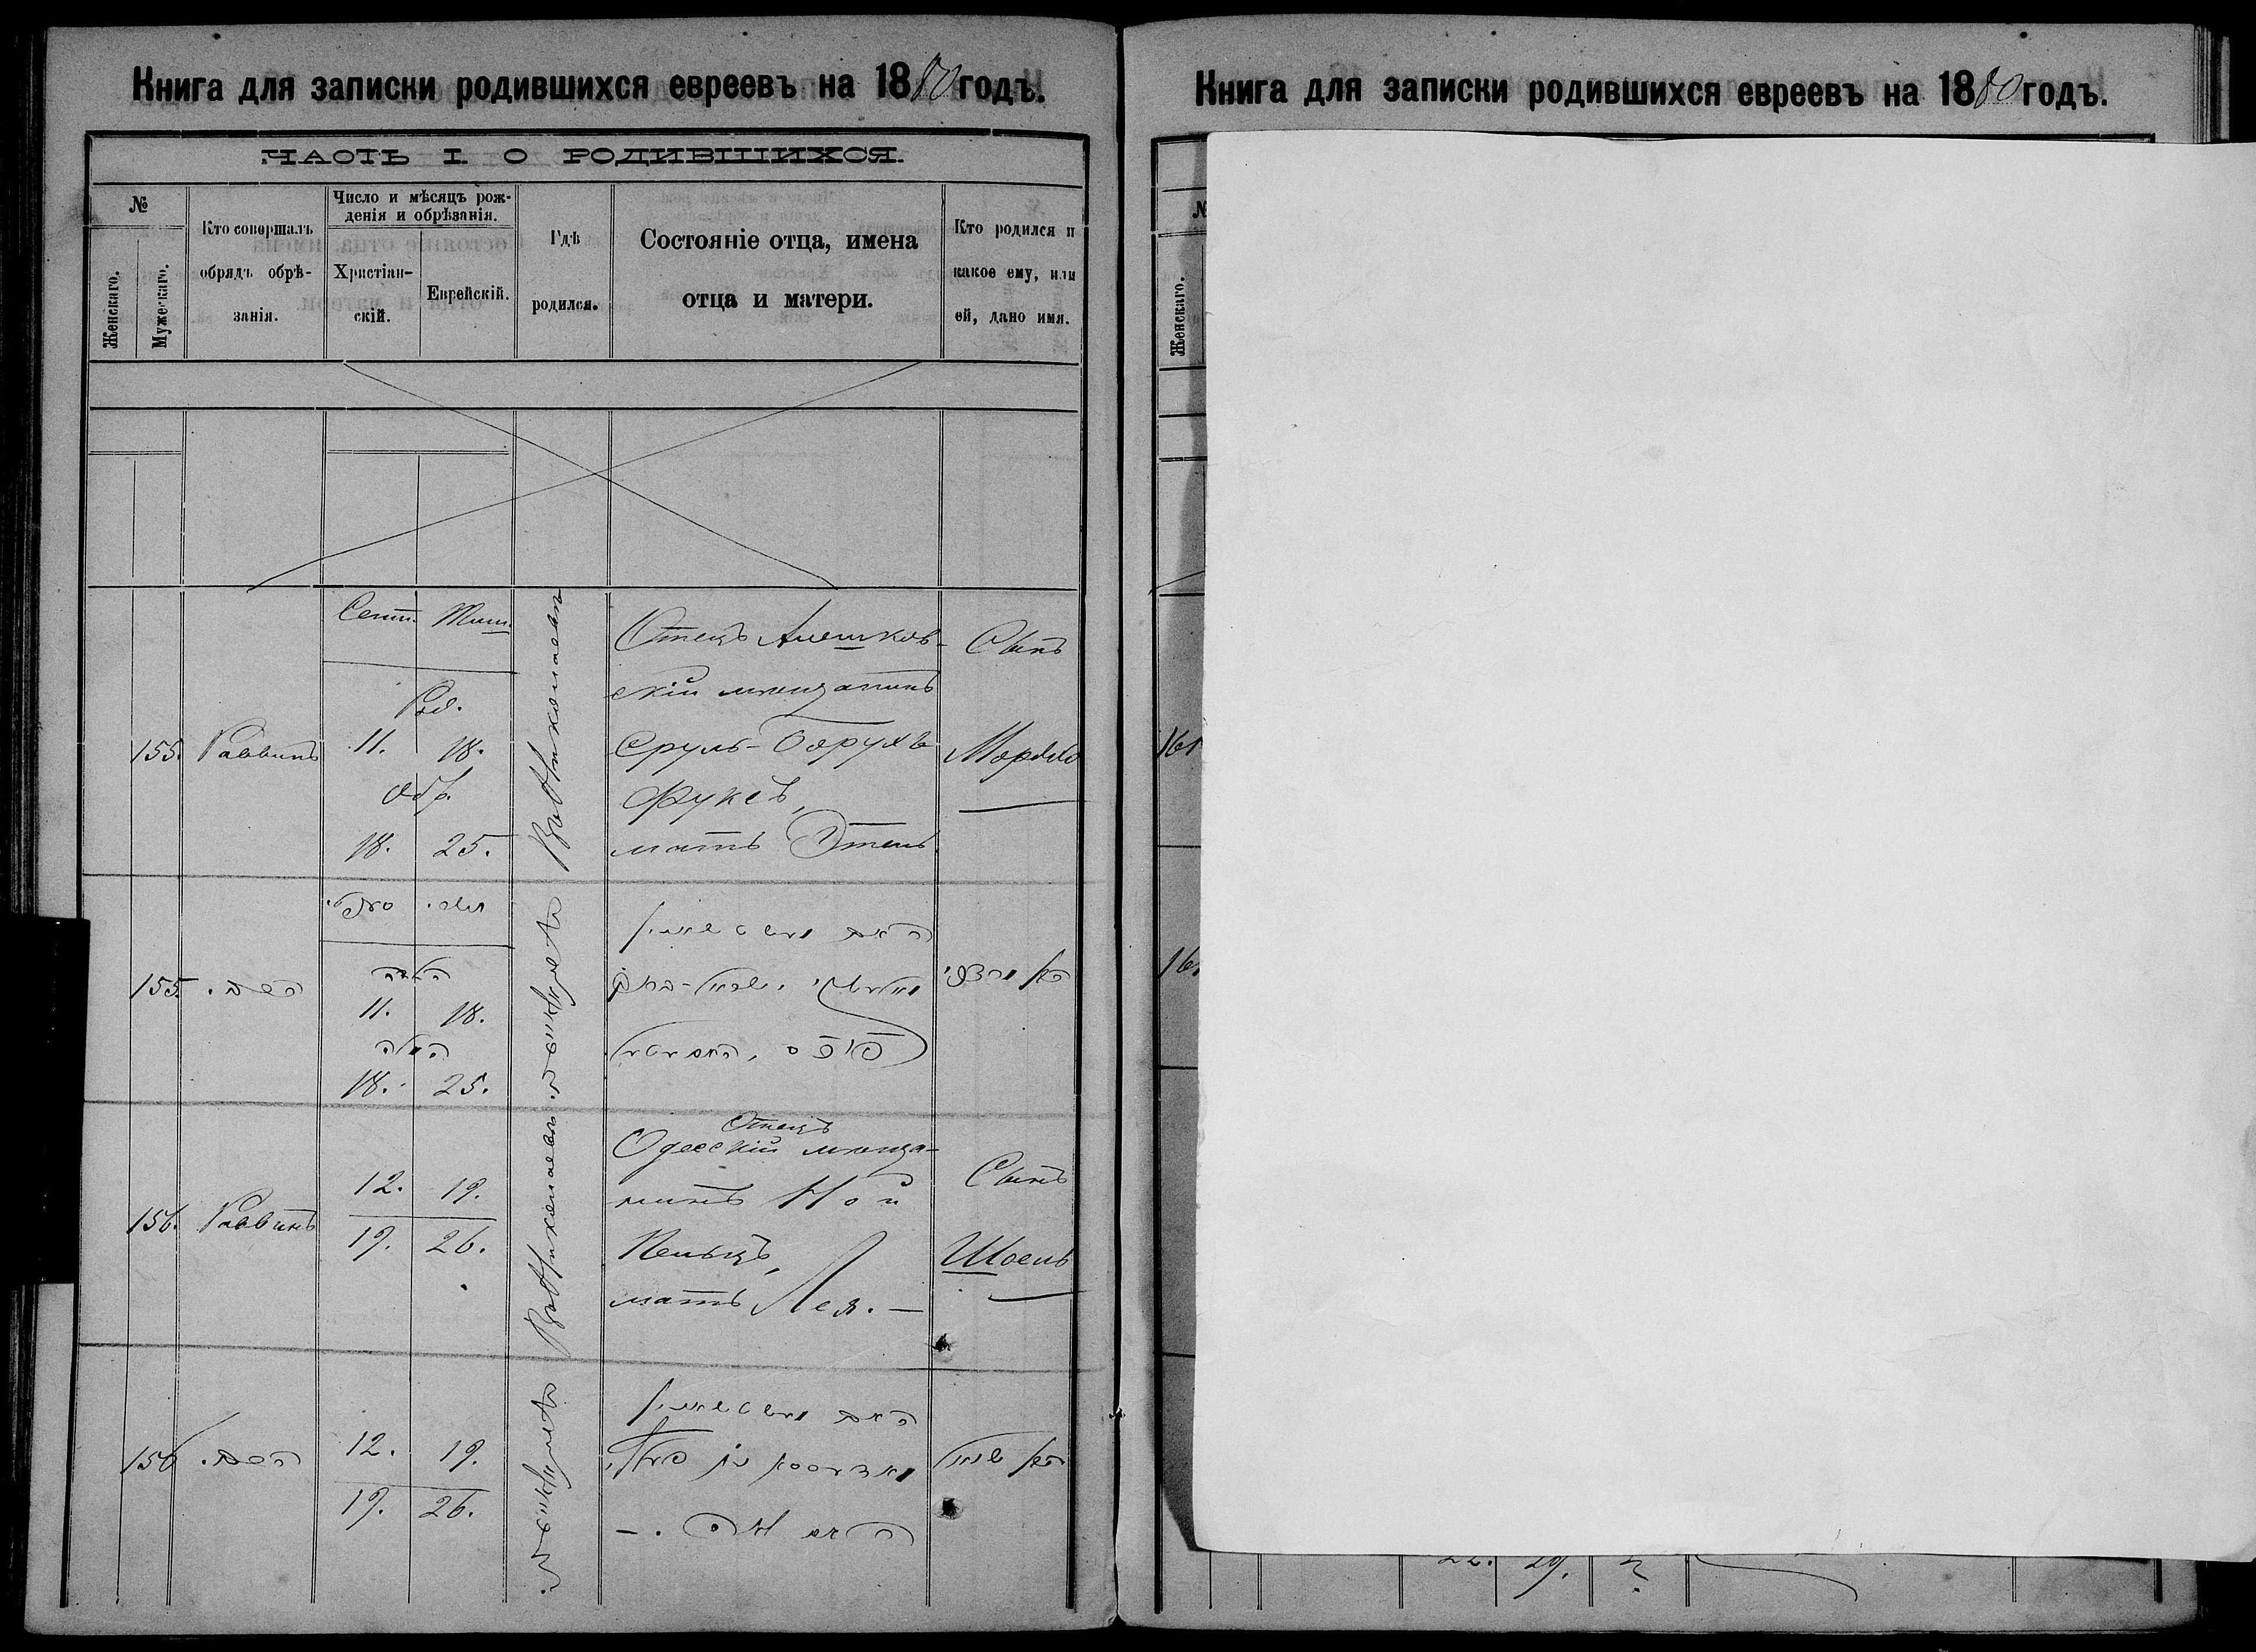 Книга для записки родившихся евреевъ на 1880 годъ.
ЧАСТЬ I. О РОДИВШИХСЯ.
№
Женскаго.
Мужескаго.
Кто совершалъ
обрядъ обрѣ-
занія.
Число и мѣсяцъ рож-
денія и обрѣзанія.
Христіан-
скій.
Еврейскій.
Гдѣ
родился.
Состояніе отца, имена
отца и матери.
Кто родился и
какое ему, или
ей, дано имя.
155.
Раввинъ
Сент. Тиш.
Род.
11. 18.
Обр.
18. 25.
Въ Николаевѣ
Отецъ Алешков-
скій мѣщанинъ
Сруль-Борухъ
Фуксъ,
мать Этель
Сынъ
Мордко
155.
הרב.
הולדה
11. 18.
המילה
18. 25.
בניקאלאייב
האב
פוקס, האם
156.
Раввинъ
12. 19.
19. 26.
Въ Николаевѣ
Отецъ
Одесскій мѣща-
нинъ Ной
Пельцъ,
мать Лея. —
Сынъ
Шоель
156
הרב.
12. 19.
19. 26.
בניקאלאייב.
האב
האם לאה. —
Книга для записки родившихся евреевъ на 1880 годъ.
№
Женскаго.
161
22. 29.